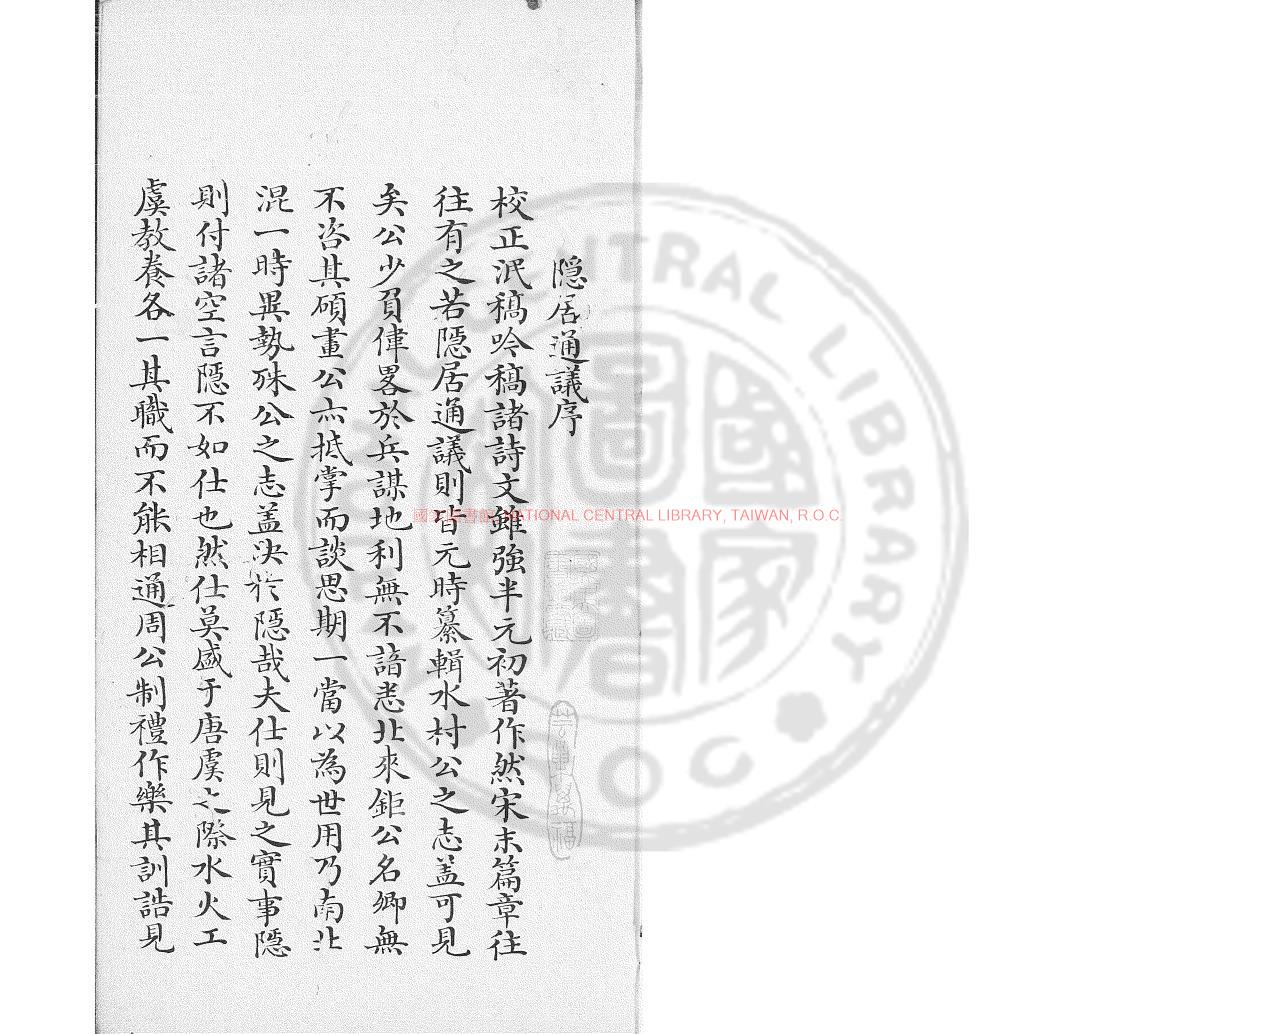 隱居通議序
校正泯稿吟稿諸詩文雖強半元初著作然宋末篇章往
往有之若隱居通議則皆元時纂輯水村公之志盖可見
矣公少負偉畧於兵謀地利無不諳悉北來鉅公名卿無
不咨其碩畫公亦抵掌而談思期一當以為世用乃南北
混一時異勢殊公之志盖决於隱哉夫仕則見之實事隱
則付諸空言隱不如仕也然仕莫盛于唐虞之際水火工
虞教養各一其職而不能相通周公制禮作樂其訓誥見
國家圖書館, NATIONAL CENTRAL LIBRARY, TAIWAN, R.O.C.